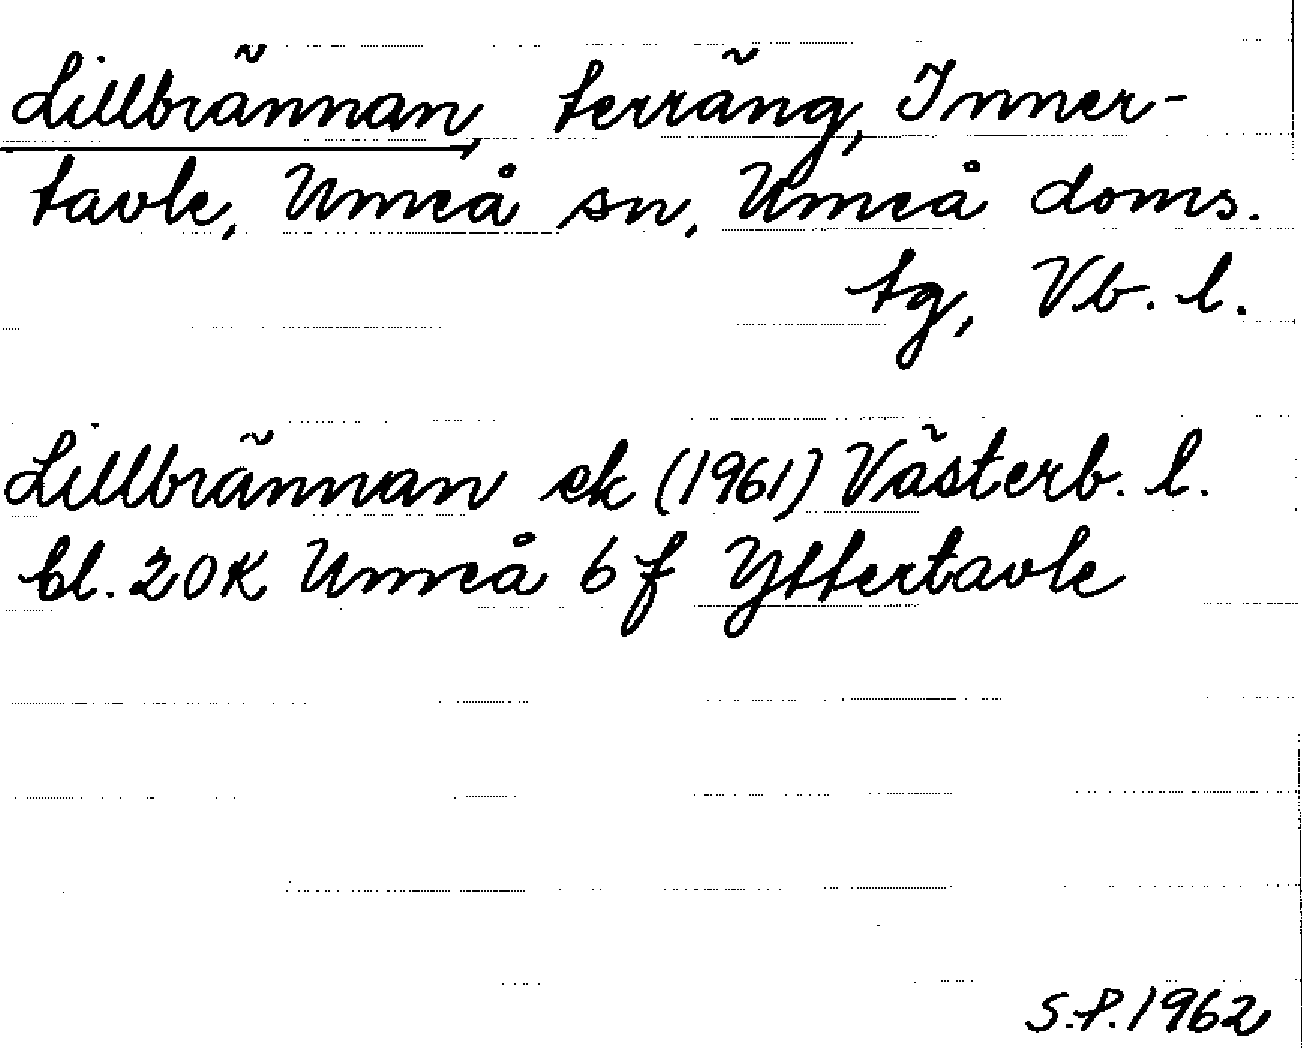 Lillbrännan, terräng, Inner-
tavle, Umeå sn, Umeå doms.
tg, Vb. l.
Lillbrännan ek (1961) Västerb. l.
bl. 20K Umeå 6 f Yttertavle
S.P. 1962